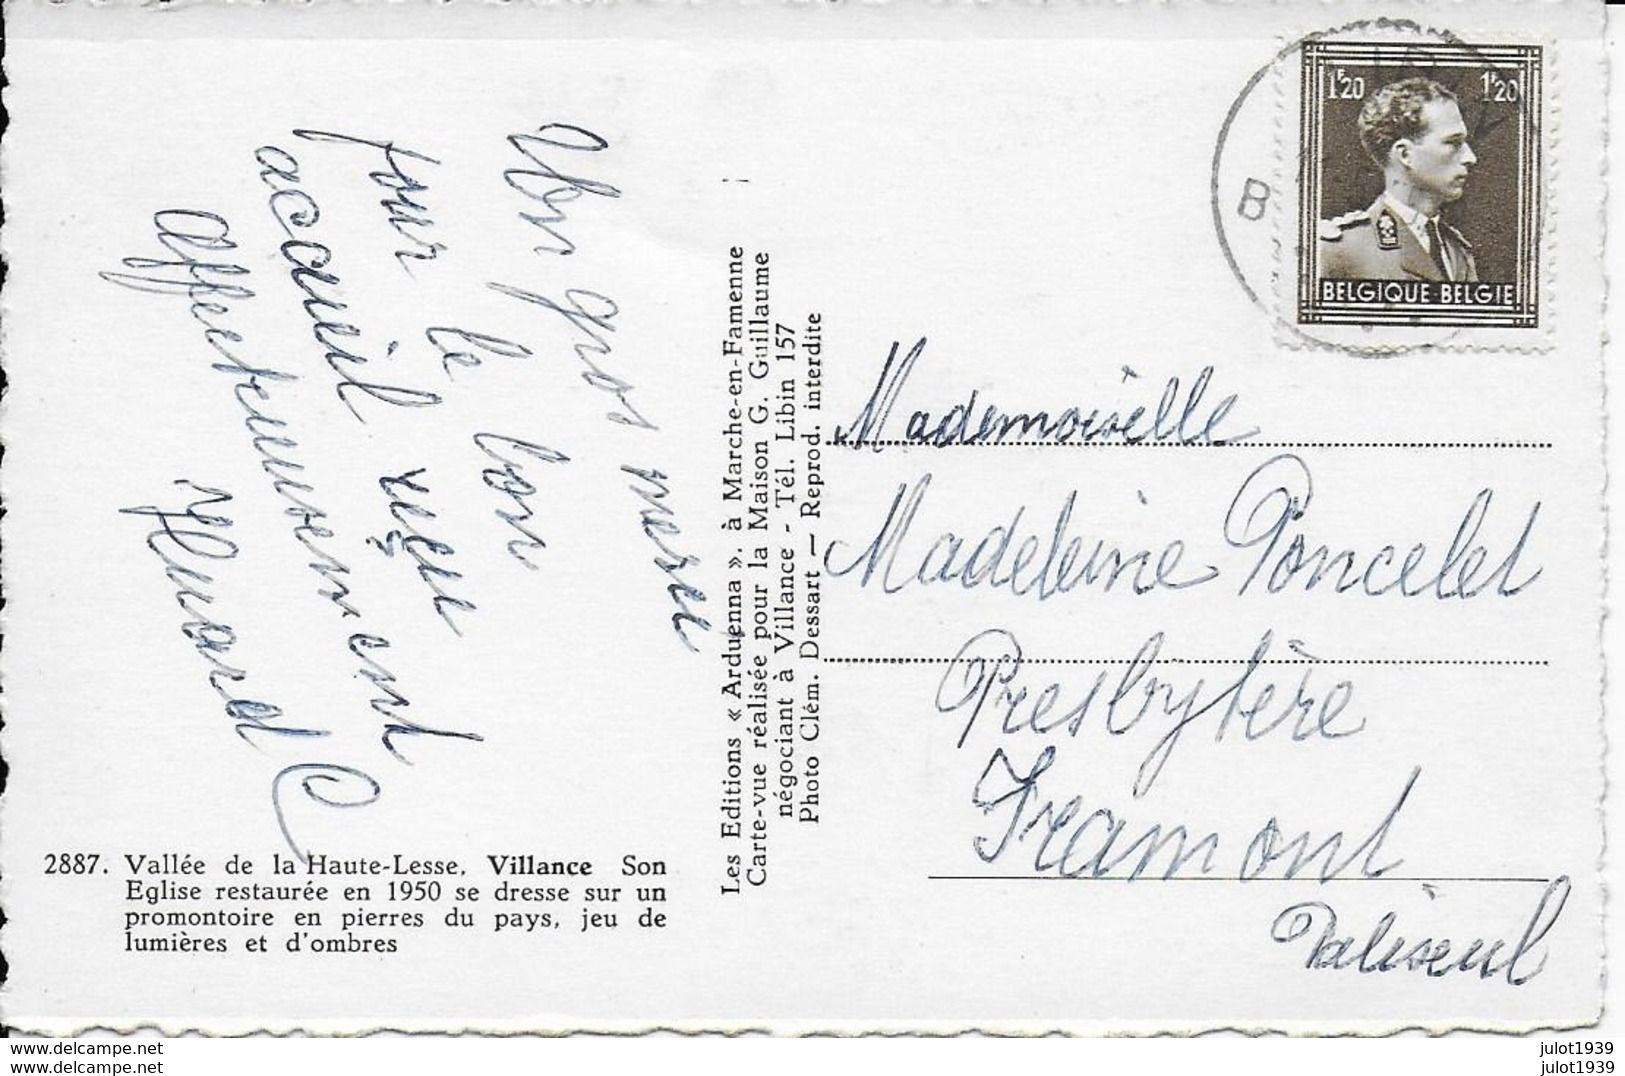 Un gros merci
pour le bon
accueil reçu
Affectueusement
1F20 1F20
BELGIQUE-BELGIE
B
Les Editions « Arduenna ». à Marche-en-Famenne
Carte-vue réalisée pour la Maison G. Guillaume
négociant à Villance - Tél. Libin 157
Photo Clém. Dessart — Reprod. interdite
Mademoiselle
Madeleine Poncelet
Presbytère
Framont
Paliseul
2887. Vallée de la Haute-Lesse, Villance Son
Eglise restaurée en 1950 se dresse sur un
promontoire en pierres du pays, jeu de
lumières et d'ombres
www.delcampe.net julot1939
www.delcampe.net julot1939